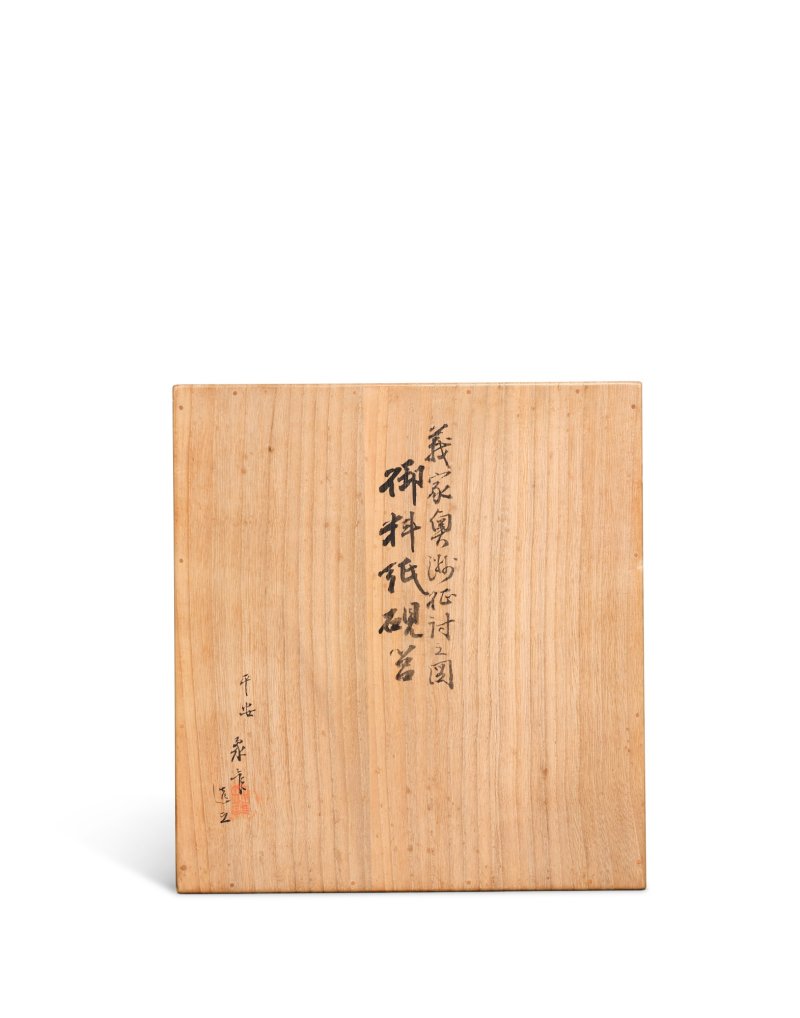 義家奥洲征討之図
御料紙硯筥
平安
泰章
造之